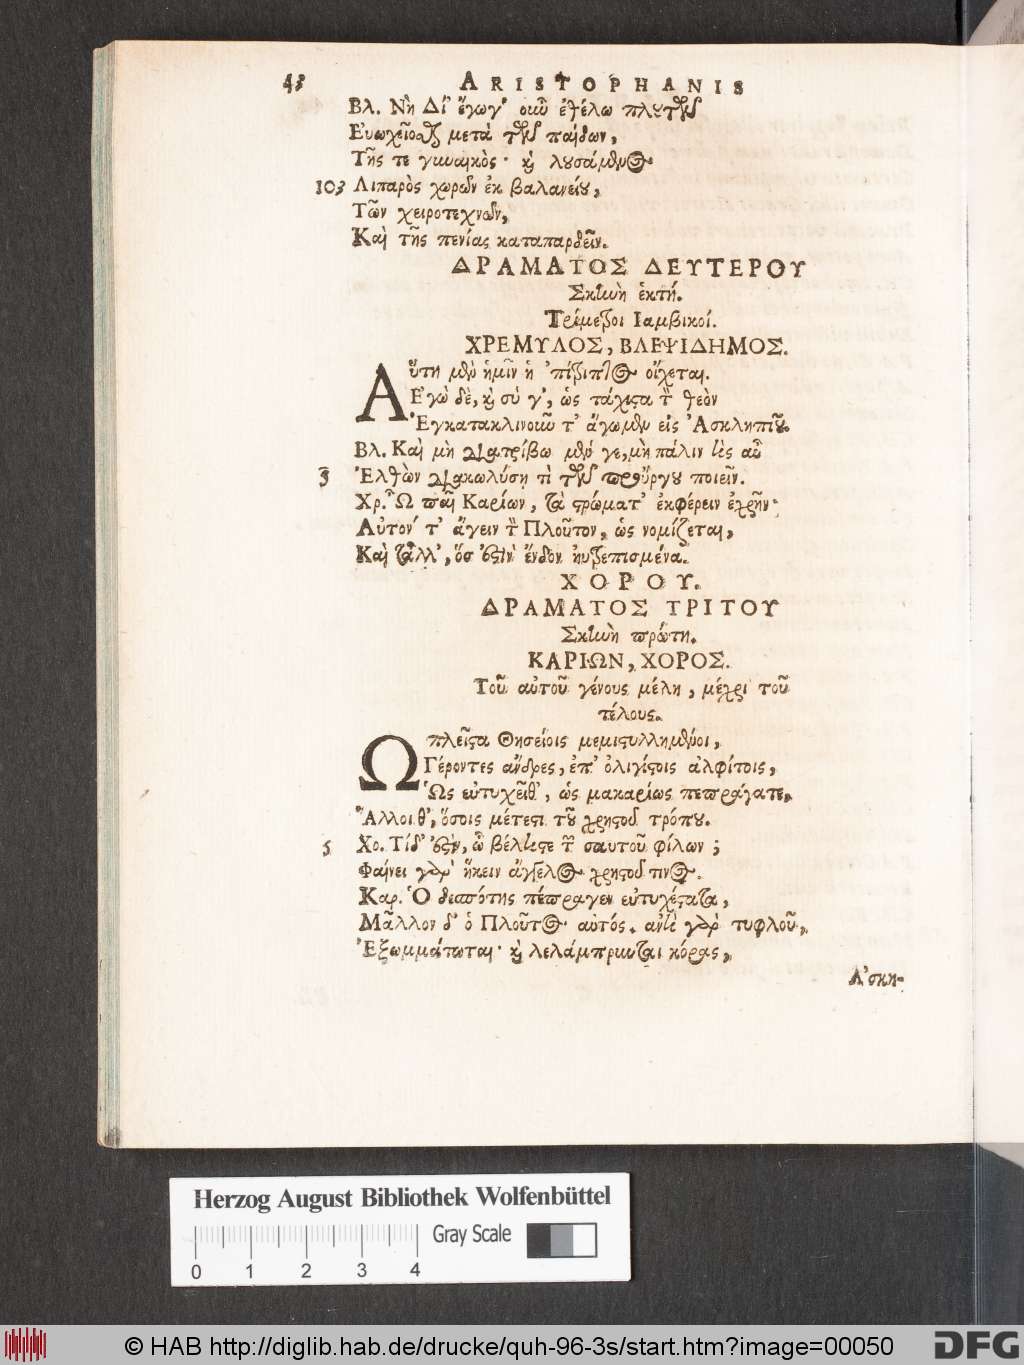 43 ARISTOPHANIS
Βλ. Νὴ Δί' ἔγωγ' οὖν ἐθέλω πλουτῶν
Εὐωχεῖσθαι μετὰ τῶν παίδων,
Τῆς τε γυναικὸς· καὶ λουσάμενος
103 Λιπαρὸς χωρῶν ἐκ βαλανείου,
Τῶν χειροτεχνῶν,
Καὶ τῆς πενίας καταπαρδεῖν.
ΔΡΑΜΑΤΟΣ ΔΕΥΤΕΡΟΥ
Σκηνὴ ἑκτή.
Τρίμετροι Ιαμβικοί.
ΧΡΕΜΥΛΟΣ, ΒΛΕΨΙΔΗΜΟΣ.
Αὕτη μὲν ἡμῖν ἡ 'πίτριπτος οἴχεται.
Ἐγὼ δὲ, καὶ σύ γ', ὡς τάχιστα τὸν θεὸν
Ἐγκατακλινοῦντ' ἄγωμεν εἰς Ἀσκληπιοῦ.
Βλ. Καὶ μὴ διατρίβωμέν γε, μὴ πάλιν τὶς αὖ
5 Ἐλθὼν διακωλύσῃ τὶ τῶν προὔργου ποιεῖν.
Χρ. Ὦ παῖ Καρίων, τὰ στρώματ' ἐκφέρειν ἐχρῆν·
Αὐτόν τ' ἄγειν τὸν Πλοῦτον, ὡς νομίζεται,
Καὶ τἆλλ', ὅσ' ἐστὶν ἔνδον ηὐτρεπισμένα.
ΧΟΡΟΥ.
ΔΡΑΜΑΤΟΣ ΤΡΙΤΟΥ
Σκηνὴ πρώτη.
ΚΑΡΙΩΝ, ΧΟΡΟΣ.
Τοῦ αὐτοῦ γένους μέλη, μέχρι τοῦ
τέλους.
Ω πλεῖστα Θησείοις μεμιστυλλημένοι,
Γέροντες ἄνδρες, ἐπ' ὀλιγίστοις ἀλφίτοις,
Ὡς εὐτυχεῖθ', ὡς μακαρίως πεπράγατε,
Ἄλλοι θ', ὅσοις μέτεστι τοῦ χρηστοῦ τρόπου.
5 Χο. Τί δ' ἐστὶν, ὦ βέλτιστε τῶν σαυτοῦ φίλων;
Φαίνει γὰρ ἥκειν ἄγγελος χρηστοῦ τινος.
Καρ. Ὁ δεσπότης πέπραγεν εὐτυχέστατα,
Μᾶλλον δ' ὁ Πλοῦτος αὐτός. ἀντὶ γὰρ τυφλοῦ,
Ἐξωμμάτωται· καὶ λελάμπρυνται κόρας,
Ἀσκη-
Herzog August Bibliothek Wolfenbüttel
Gray Scale
0 1 2 3 4
© HAB http://diglib.hab.de/drucke/quh-96-3s/start.htm?image=00050
DFG